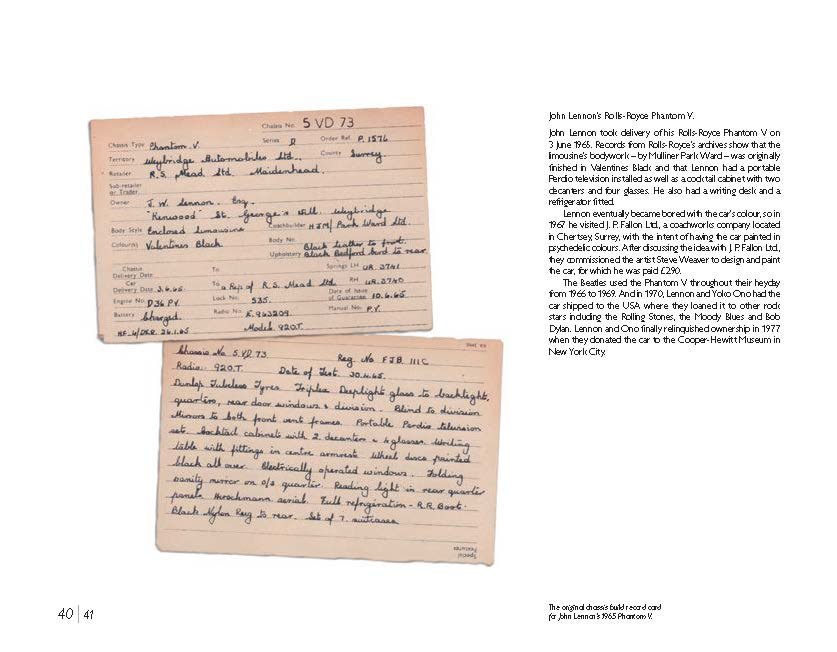 Chassis No. 5 VD 73
Chassis Type Phantom V. Series D Order Ref. P. 1576
Territory Weybridge Automobiles Ltd. County Surrey.
Retailer R.S. Mead Ltd. Maidenhead.
Sub-retailer
or Trader.
Owner J.W. Lennon. Esq.
"Kenwood" St. George's Hill. Weybridge
Body Style Enclosed limousine Coachbuilder H.J.M/ Park Ward Ltd.
Colour(s) Valentines Black. Body No.
Upholstery Black leather to front. Black Bedford Cord to rear.
Chassis
Delivery Date To Springs LH UR. 3741
Car
Delivery Date 3.6.65. To a Rep of R.S. Mead Ltd. RH UR. 3740
Engine No. D36 P.V. Lock No. 535. Date of Issue
of Guarantee 10.6.65
Battery Charged. Radio No. K. 963209. Manual No. P.V.
26.1.65 Model. 920T.
Chassis No 5.VD.73. Reg. No FJB. 111C
Radio. 920.T. Date of Test. 30.4.65.
Dunlop Tubeless Tyres. Triplex Deeplight glass to backlight,
quarters, rear door windows & division. Blind to division
Mirrors to both front vent frames. Portable Perdio television
set. Cocktail cabinets with 2 decanters & 4 glasses. Writing
table with fittings in centre armrest. Wheel discs painted
black all over. Electrically operated windows. Folding
vanity mirror on o/s quarter. Reading light in rear quarter
panels. Hirschmann aerial. Full refrigeration - R.R. Boot.
Black Nylon Rug to rear. Set of 7. suitcases
Special
Features
John Lennon's Rolls-Royce Phantom V.
John Lennon took delivery of his Rolls-Royce Phantom V on
3 June 1965. Records from Rolls-Royce's archives show that the
limousine's bodywork – by Mulliner Park Ward – was originally
finished in Valentines Black and that Lennon had a portable
Perdio television installed as well as a cocktail cabinet with two
decanters and four glasses. He also had a writing desk and a
refrigerator fitted.
Lennon eventually became bored with the car's colour, so in
1967 he visited J. P. Fallon Ltd., a coachworks company located
in Chertsey, Surrey, with the intent of having the car painted in
psychedelic colours. After discussing the idea with J. P. Fallon Ltd.,
they commissioned the artist Steve Weaver to design and paint
the car, for which he was paid £290.
The Beatles used the Phantom V throughout their heyday
from 1966 to 1969. And in 1970, Lennon and Yoko Ono had the
car shipped to the USA where they loaned it to other rock
stars including the Rolling Stones, the Moody Blues and Bob
Dylan. Lennon and Ono finally relinquished ownership in 1977
when they donated the car to the Cooper-Hewitt Museum in
New York City.
40 | 41
The original chassis build record card
for John Lennon's 1965 Phantom V.